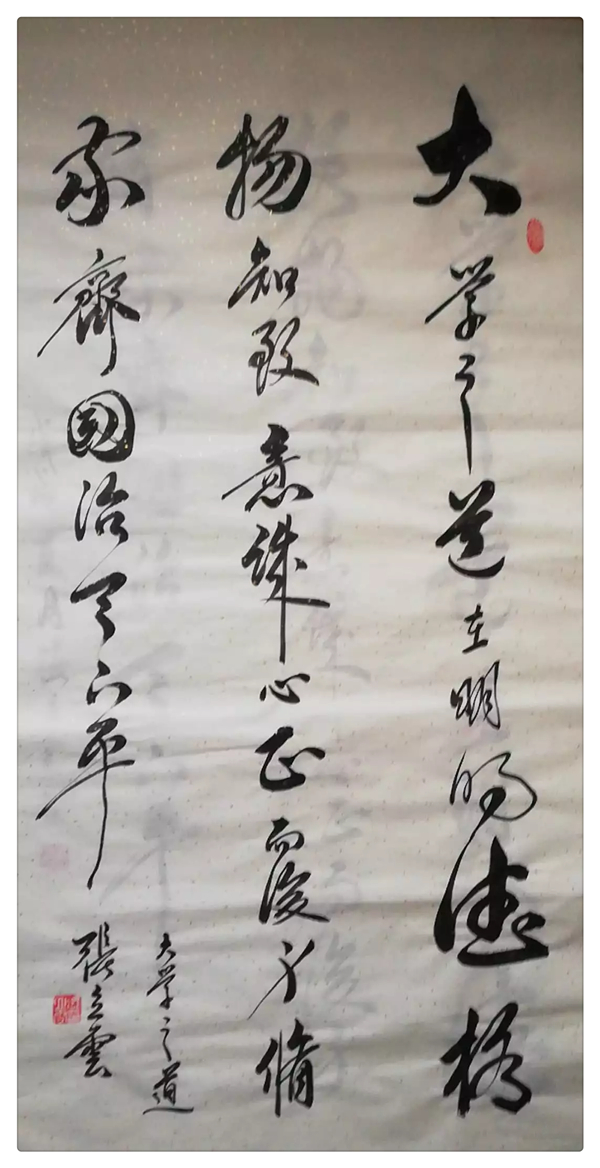 大学之道在明明德格
物知致意诚心正而後身脩
家齊國治天下平
大学之道
張立雲